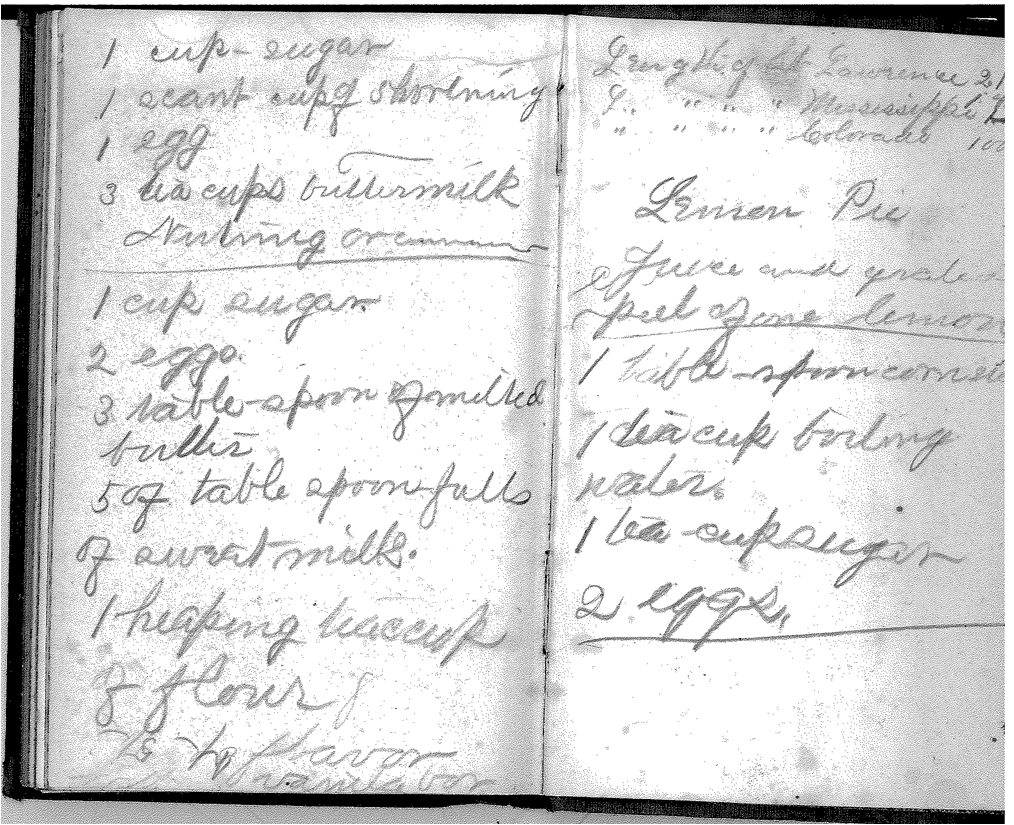 1 cup - sugar
1 scant cup of shortning
1 egg
3 tea cups buttermilk
Nutmeg or
1 cup sugar.
2 eggs.
3 table-spoon of melted
butter
5 of table spoon-fulls
of sweet milk.
1 heaping teaccup
of flour
flavor
vanila
Length of St Lawrence
L.. " " " Mississippi
" " " " Colorado
Lemon Pie
Juice and
peel of one lemon
1 table-spoon
1 tea cup boiling
water.
1 tea-cup sugar
2 eggs.